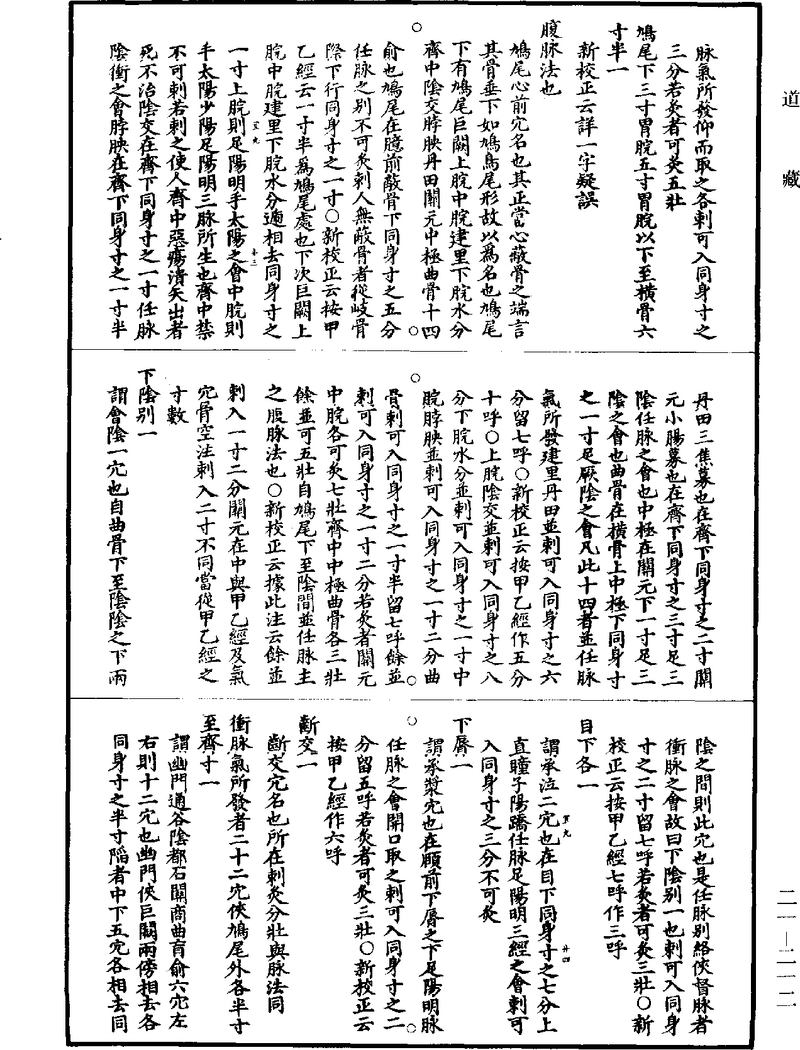 道藏
脉氣所發仰而取之各刺可入同身寸之
三分若灸者可灸五壯
鳩尾下三寸胃脘五寸胃脘以下至橫骨六
寸半一
新校正云詳一字疑誤
腹脉法也
鳩尾心前宂名也其正當心蔽骨之端言
其骨垂下如鳩鳥尾形故以爲名也鳩尾
下有鳩尾巨闕上脘中脘建里下脘水分
齊中陰交脖胦丹田關元中極曲骨十四
俞也鳩尾在臆前蔽骨下同身寸之五分
任脉之别不可灸刺人無蔽骨者從岐骨
際下行同身寸之一寸○新校正云按甲
乙經云一寸半爲鳩尾處也下次巨闕上
脘中脘建里下脘水分遞相去同身寸之
一寸上脘則足陽明手太陽之會中脘則
手太陽少陽足陽明三脉所生也齊中禁
不可刺若刺之使人齊中惡瘍潰矢出者
死不治陰交在齊下同身寸之一寸任脉
陰衝之會脖胦在齊下同身寸之一寸半
丹田三焦募也在齊下同身寸之二寸關
元小腸募也在齊下同身寸之三寸足三
陰任脉之會也中極在關元下一寸足三
陰之會也曲骨在橫骨上中極下同身寸
之一寸足厥陰之會凡此十四者並任脉
氣所發建里丹田並刺可入同身寸之六
分留七呼○新校正云按甲乙經作五分
十呼○上脘陰交並刺可入同身寸之八
分下脘水分並刺可入同身寸之一寸中
脘脖胦並刺可入同身寸之一寸二分曲
骨刺可入同身寸之一寸半留七呼餘並
刺可入同身寸之一寸二分若灸者關元
中脘各可灸七壯齊中中極曲骨各三壯
餘並可五壯自鳩尾下至陰間並任脉主
之腹脉法也○新校正云據此注云餘並
刺入一寸二分關元在中與甲乙經及氣
宂骨空注刺入二寸不同當從甲乙經之
寸數
下陰别一
謂會陰一宂也自曲骨下至陰陰之下兩
陰之間則此宂也是任脉别絡俠督脉者
衝脉之會故曰下陰别一也刺可入同身
寸之二寸留七呼若灸者可灸三壯○新
校正云按甲乙經七呼作三呼
目下各一
謂承泣二宂也在目下同身寸之七分上
直瞳子陽蹻任脉足陽明三經之會刺可
入同身寸之三分不可灸
下脣一
謂承漿宂也在頤前下脣之下足陽明脉
任脉之會開口取之刺可入同身寸之二
分留五呼若灸者可灸三壯○新校正云
按甲乙經作六呼
齗交一
齗交宂名也所在刺灸分壯與脉法同
衝脉氣所發者二十二宂俠鳩尾外各半寸
至齊寸一
謂幽門通谷陰都石關商曲肓俞六宂左
右則十二宂也幽門俠巨闕兩傍相去各
同身寸之半寸陷者中下五宂各相去同
二一—二一二